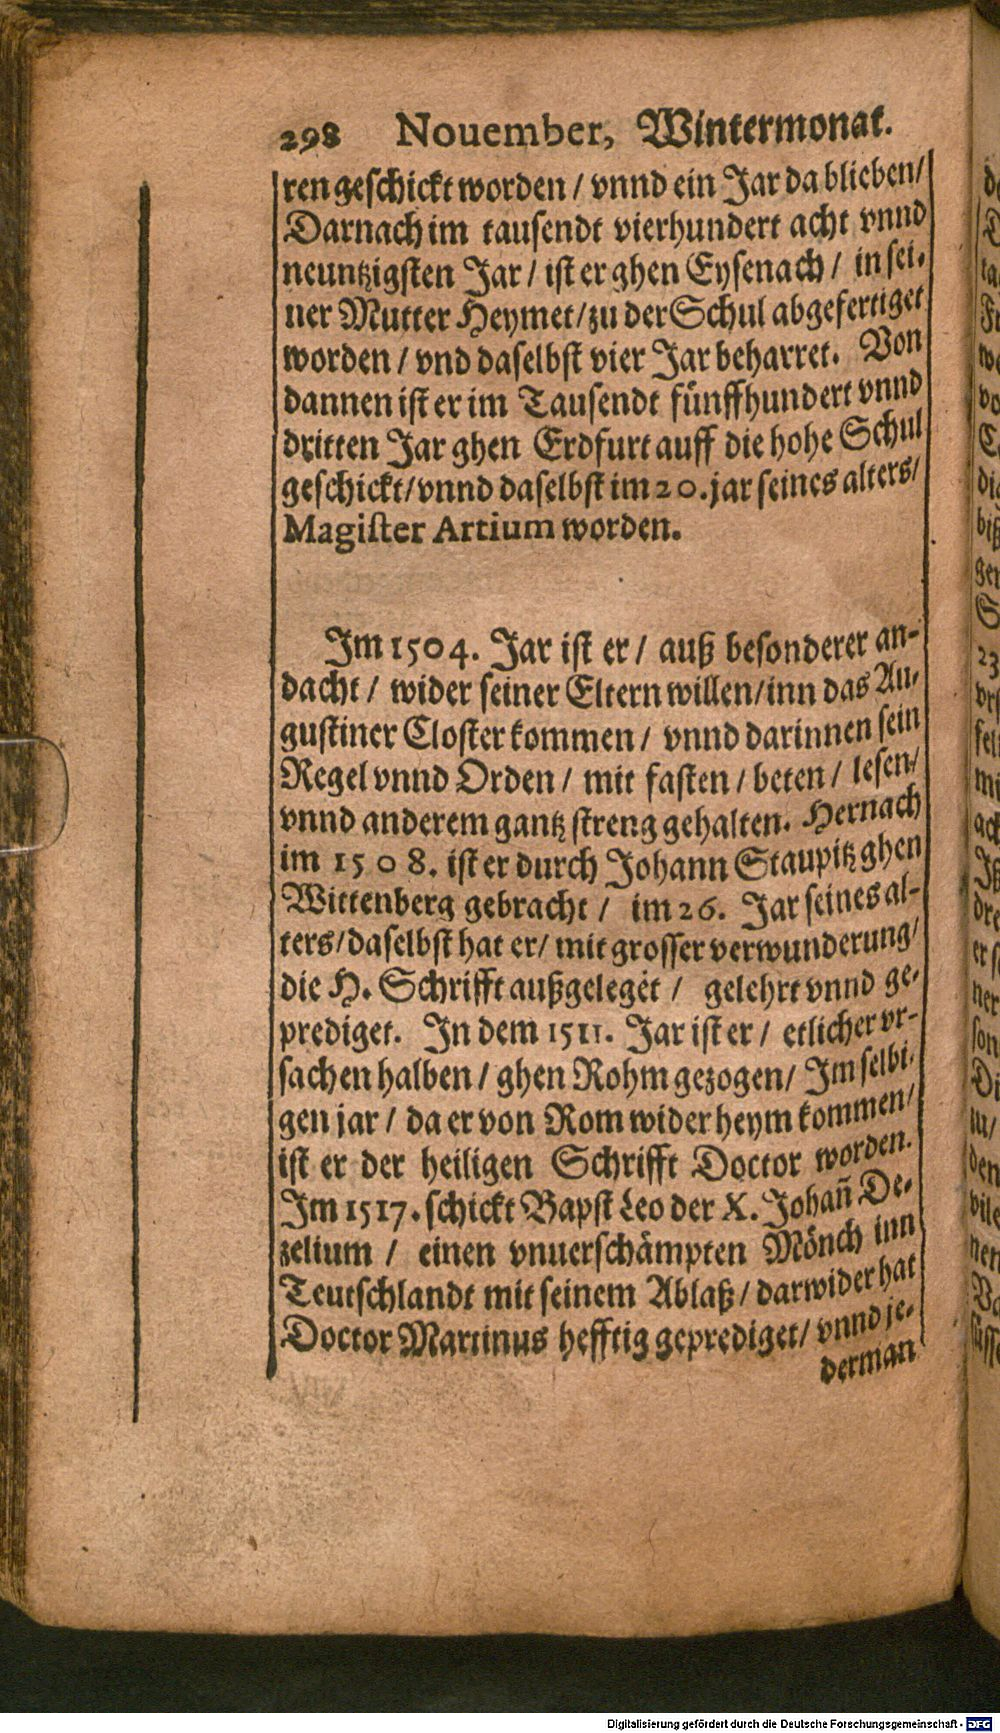 298 Nouember, Wintermonat.
ren geschickt worden / vnnd ein Jar da blieben /
Darnach im tausendt vierhundert acht vnnd
neuntzigsten Jar / ist er ghen Eysenach / in sei-
ner Mutter Heymet / zu der Schul abgefertiget
worden / vnd daselbst vier Jar beharret. Von
dannen ist er im Tausendt fünffhundert vnnd
dritten Jar ghen Erdfurt auff die hohe Schul
geschickt / vnnd daselbst im 20. jar seines alters /
Magister Artium worden.
Im 1504. Jar ist er / auß besonderer an-
dacht / wider seiner Eltern willen / inn das Au-
gustiner Closter kommen / vnnd darinnen sein
Regel vnnd Orden / mit fasten / beten / lesen /
vnnd anderem gantz streng gehalten. Hernach
im 1508. ist er durch Johann Staupitz ghen
Wittenberg gebracht / im 26. Jar seines al-
ters / daselbst hat er / mit grosser verwunderung /
die H. Schrifft außgeleget / gelehrt vnnd ge-
prediget. In dem 1511. Jar ist er / etlicher vr-
sachen halben / ghen Rohm gezogen / Im selbi-
gen jar / da er von Rom wider heym kommen /
ist er der heiligen Schrifft Doctor worden.
Im 1517. schickt Bapst Leo der X. Johañ De-
zelium / einen vnuerschämpten Mönch inn
Teutschlandt mit seinem Ablaß / darwider hat
Doctor Martinus hefftig geprediget / vnnd je-
derman
Digitalisierung gefördert durch die Deutsche Forschungsgemeinschaft - DFG